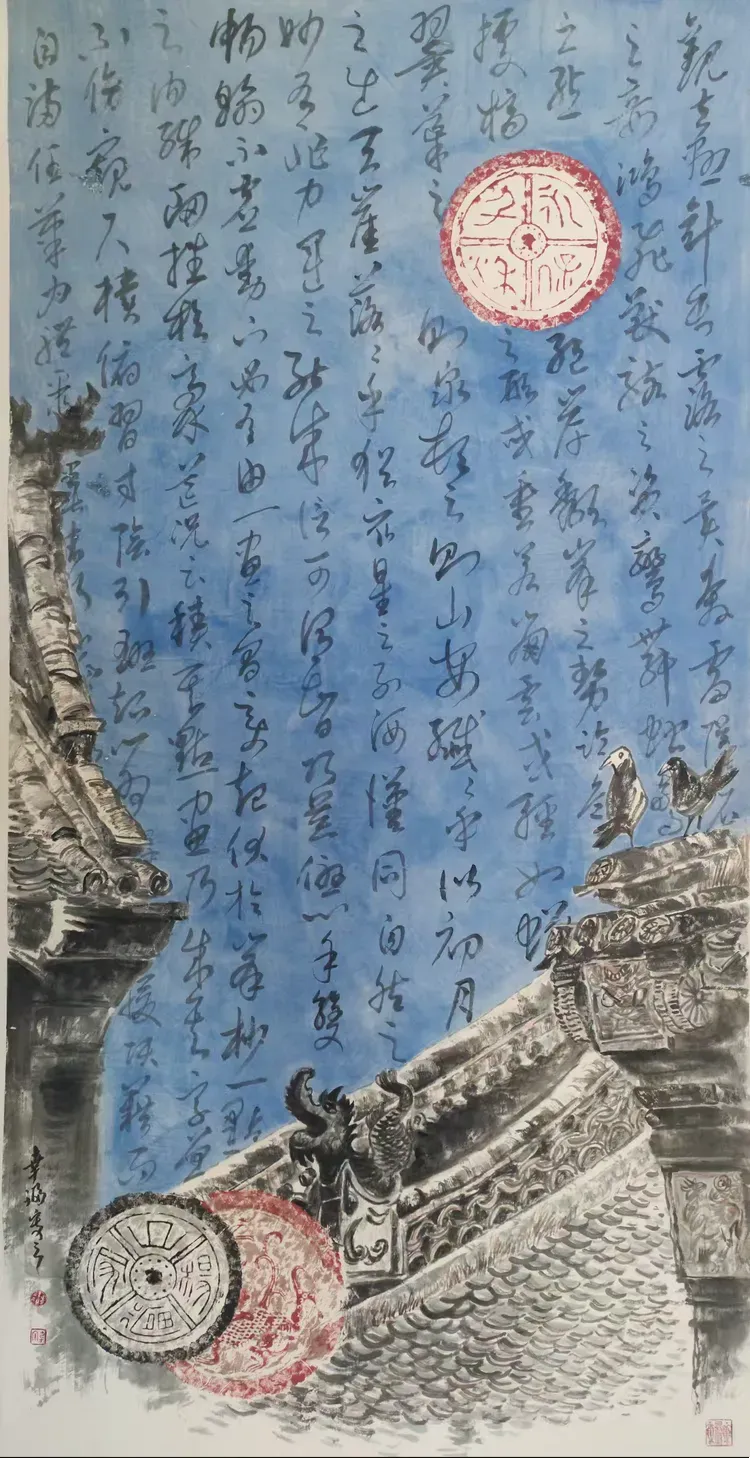 觀夫懸針垂露之異奔雷墜石
之奇鴻飛獸駭之資鸞舞蛇驚
之態絕岸頹峯之勢臨危
據槁之形或重若崩雲或輕如蟬
翼導之則泉注頓之則山安纖纖乎似初月
之出天崖落落乎猶衆星之列河漢同自然之
妙有非力運之能成信可謂智巧兼優心手雙
暢翰不虛動下必有由一畫之間變起伏於峯杪一點
之內殊衄挫於豪芒況云積其點畫乃成其字曾
不傍窺尺櫝俯習寸陰引班超以爲辭援項籍而
自滿任筆爲體聚墨成